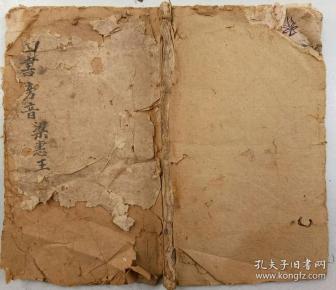 書旁音
梁惠王
孔夫子旧书网
www.kongfz.com